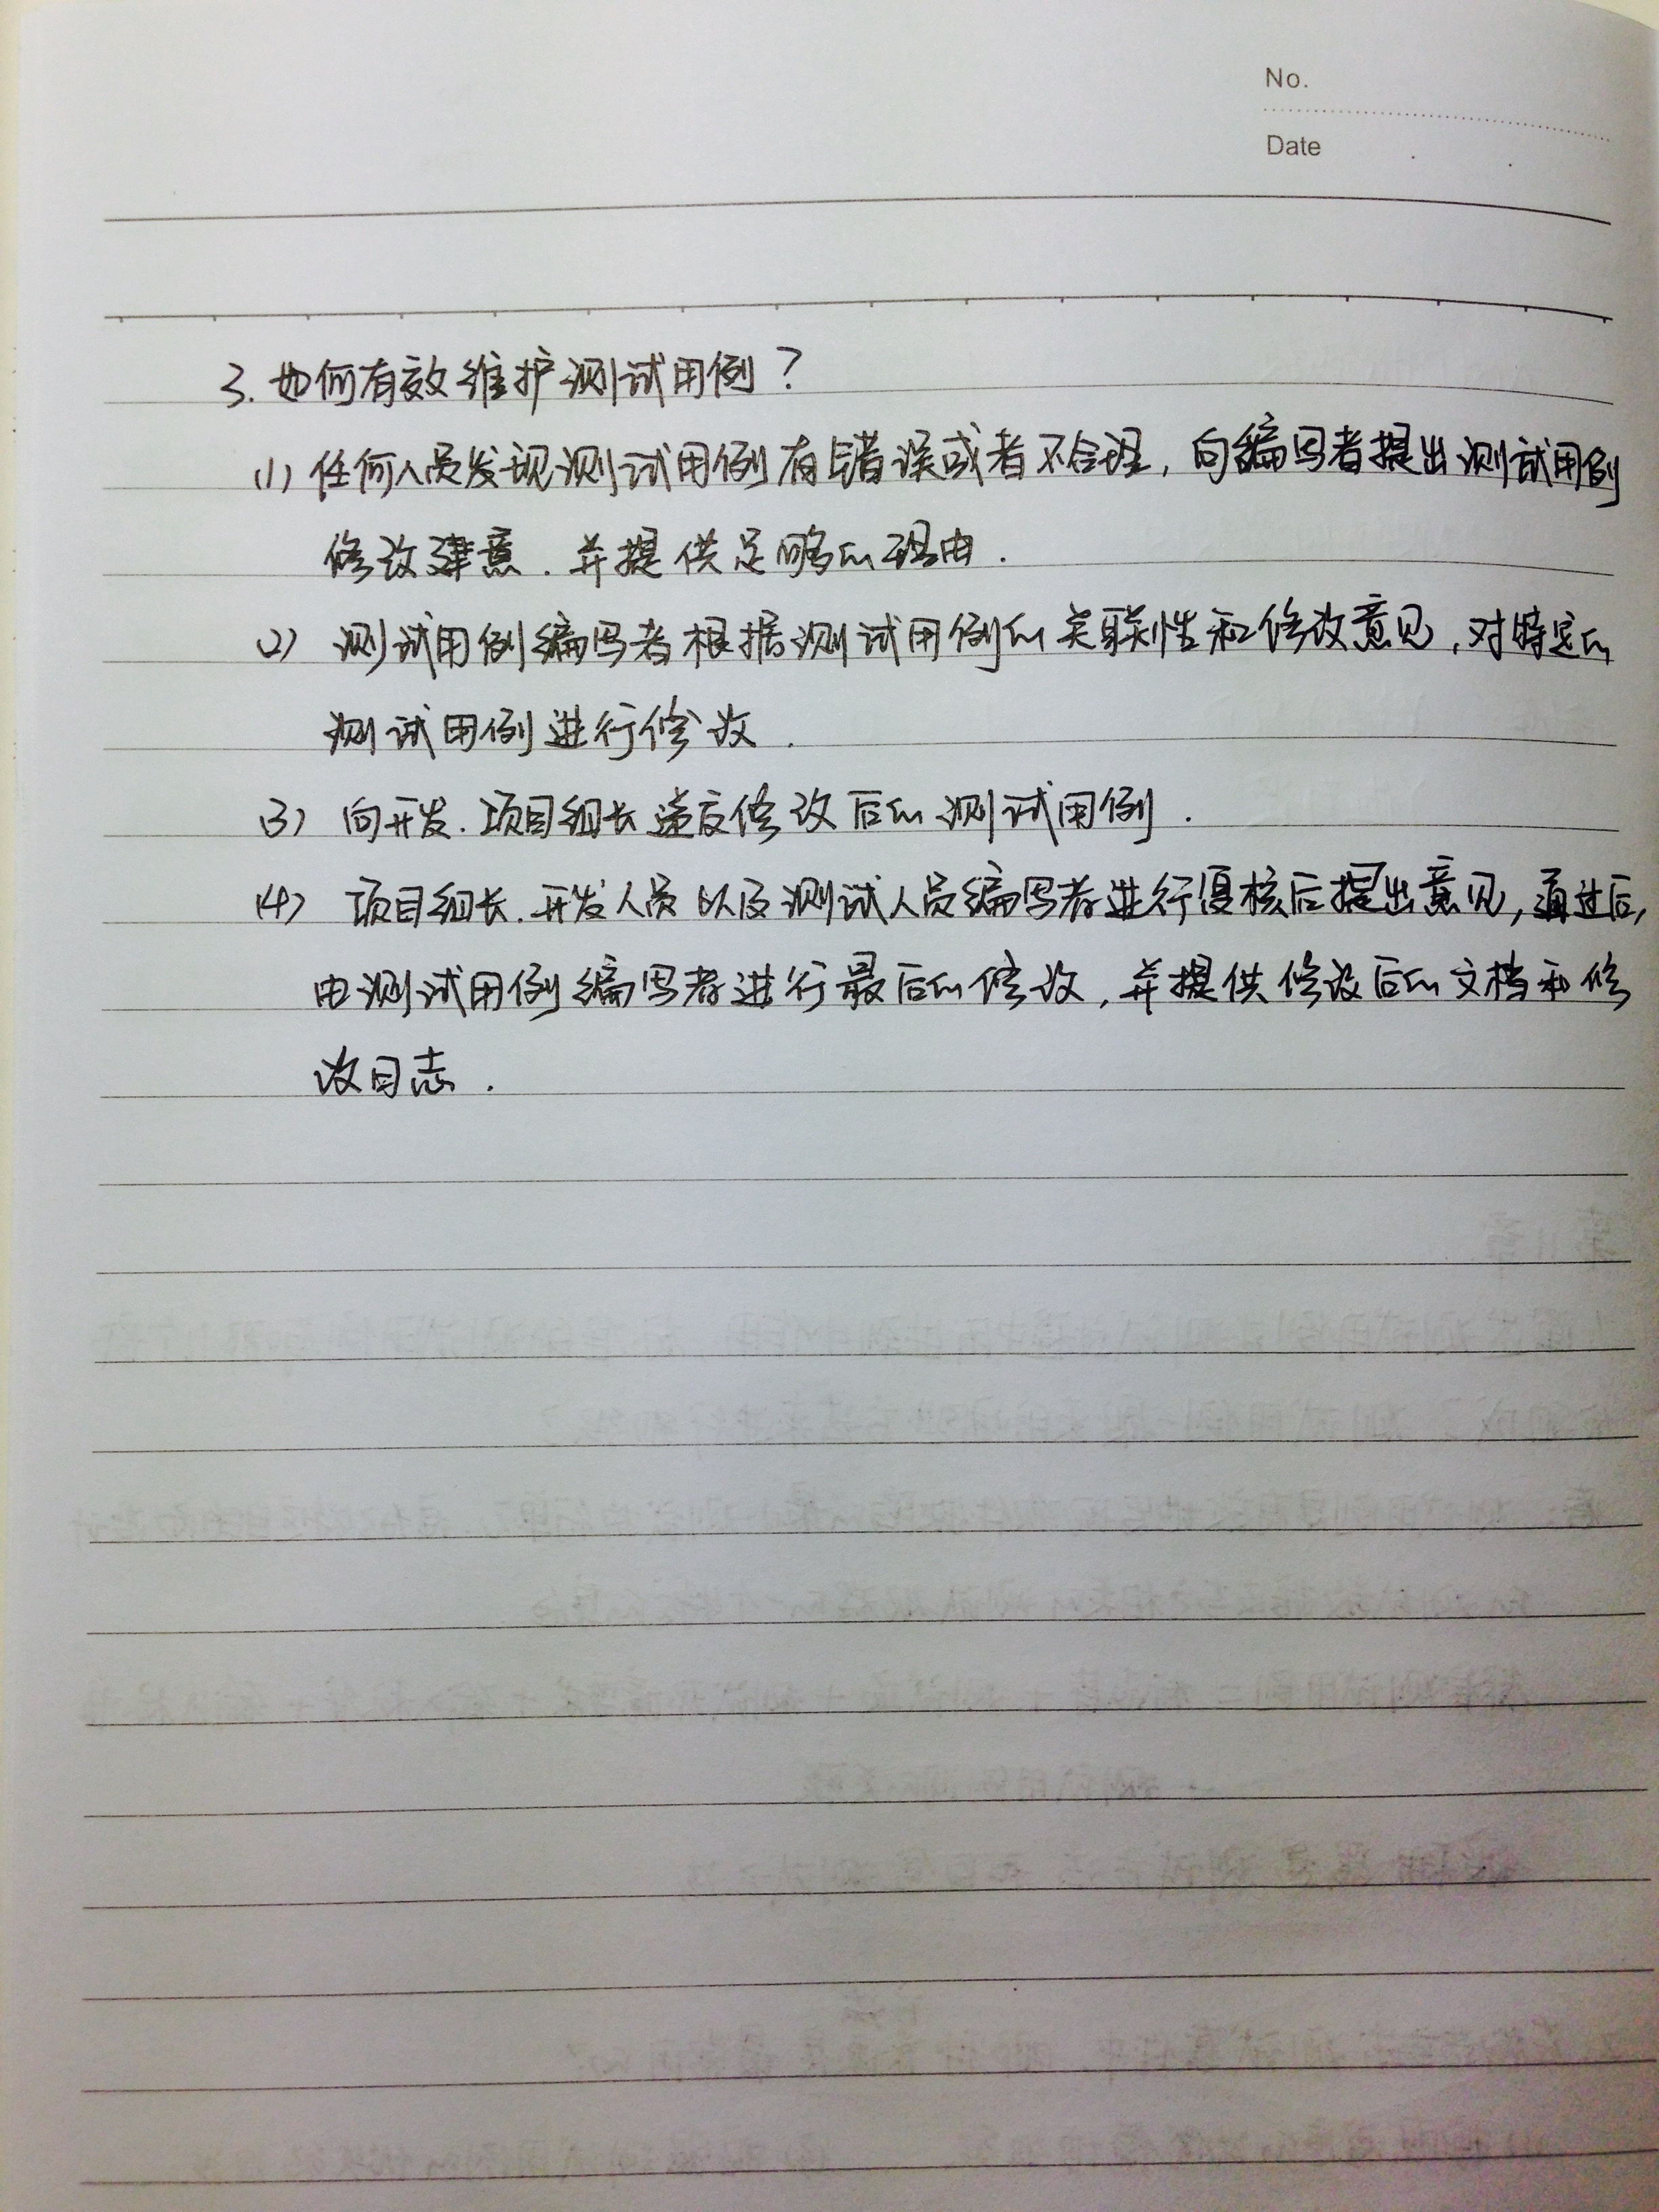 No.
Date
3. 如何有效维护测试用例？
(1) 任何人员发现测试用例有错误或者不合理，向编写者提出测试用例
修改建意．并提供足够的理由．
(2) 测试用例编写者根据测试用例的关联性和修改意见，对特定的
测试用例进行修改．
(3) 向开发．项目组长递交修改后的测试用例．
(4) 项目组长．开发人员以及测试人员编写者进行复核后提出意见，通过后，
由测试用例编写者进行最后的修改，并提供修改后的文档和修
改日志．